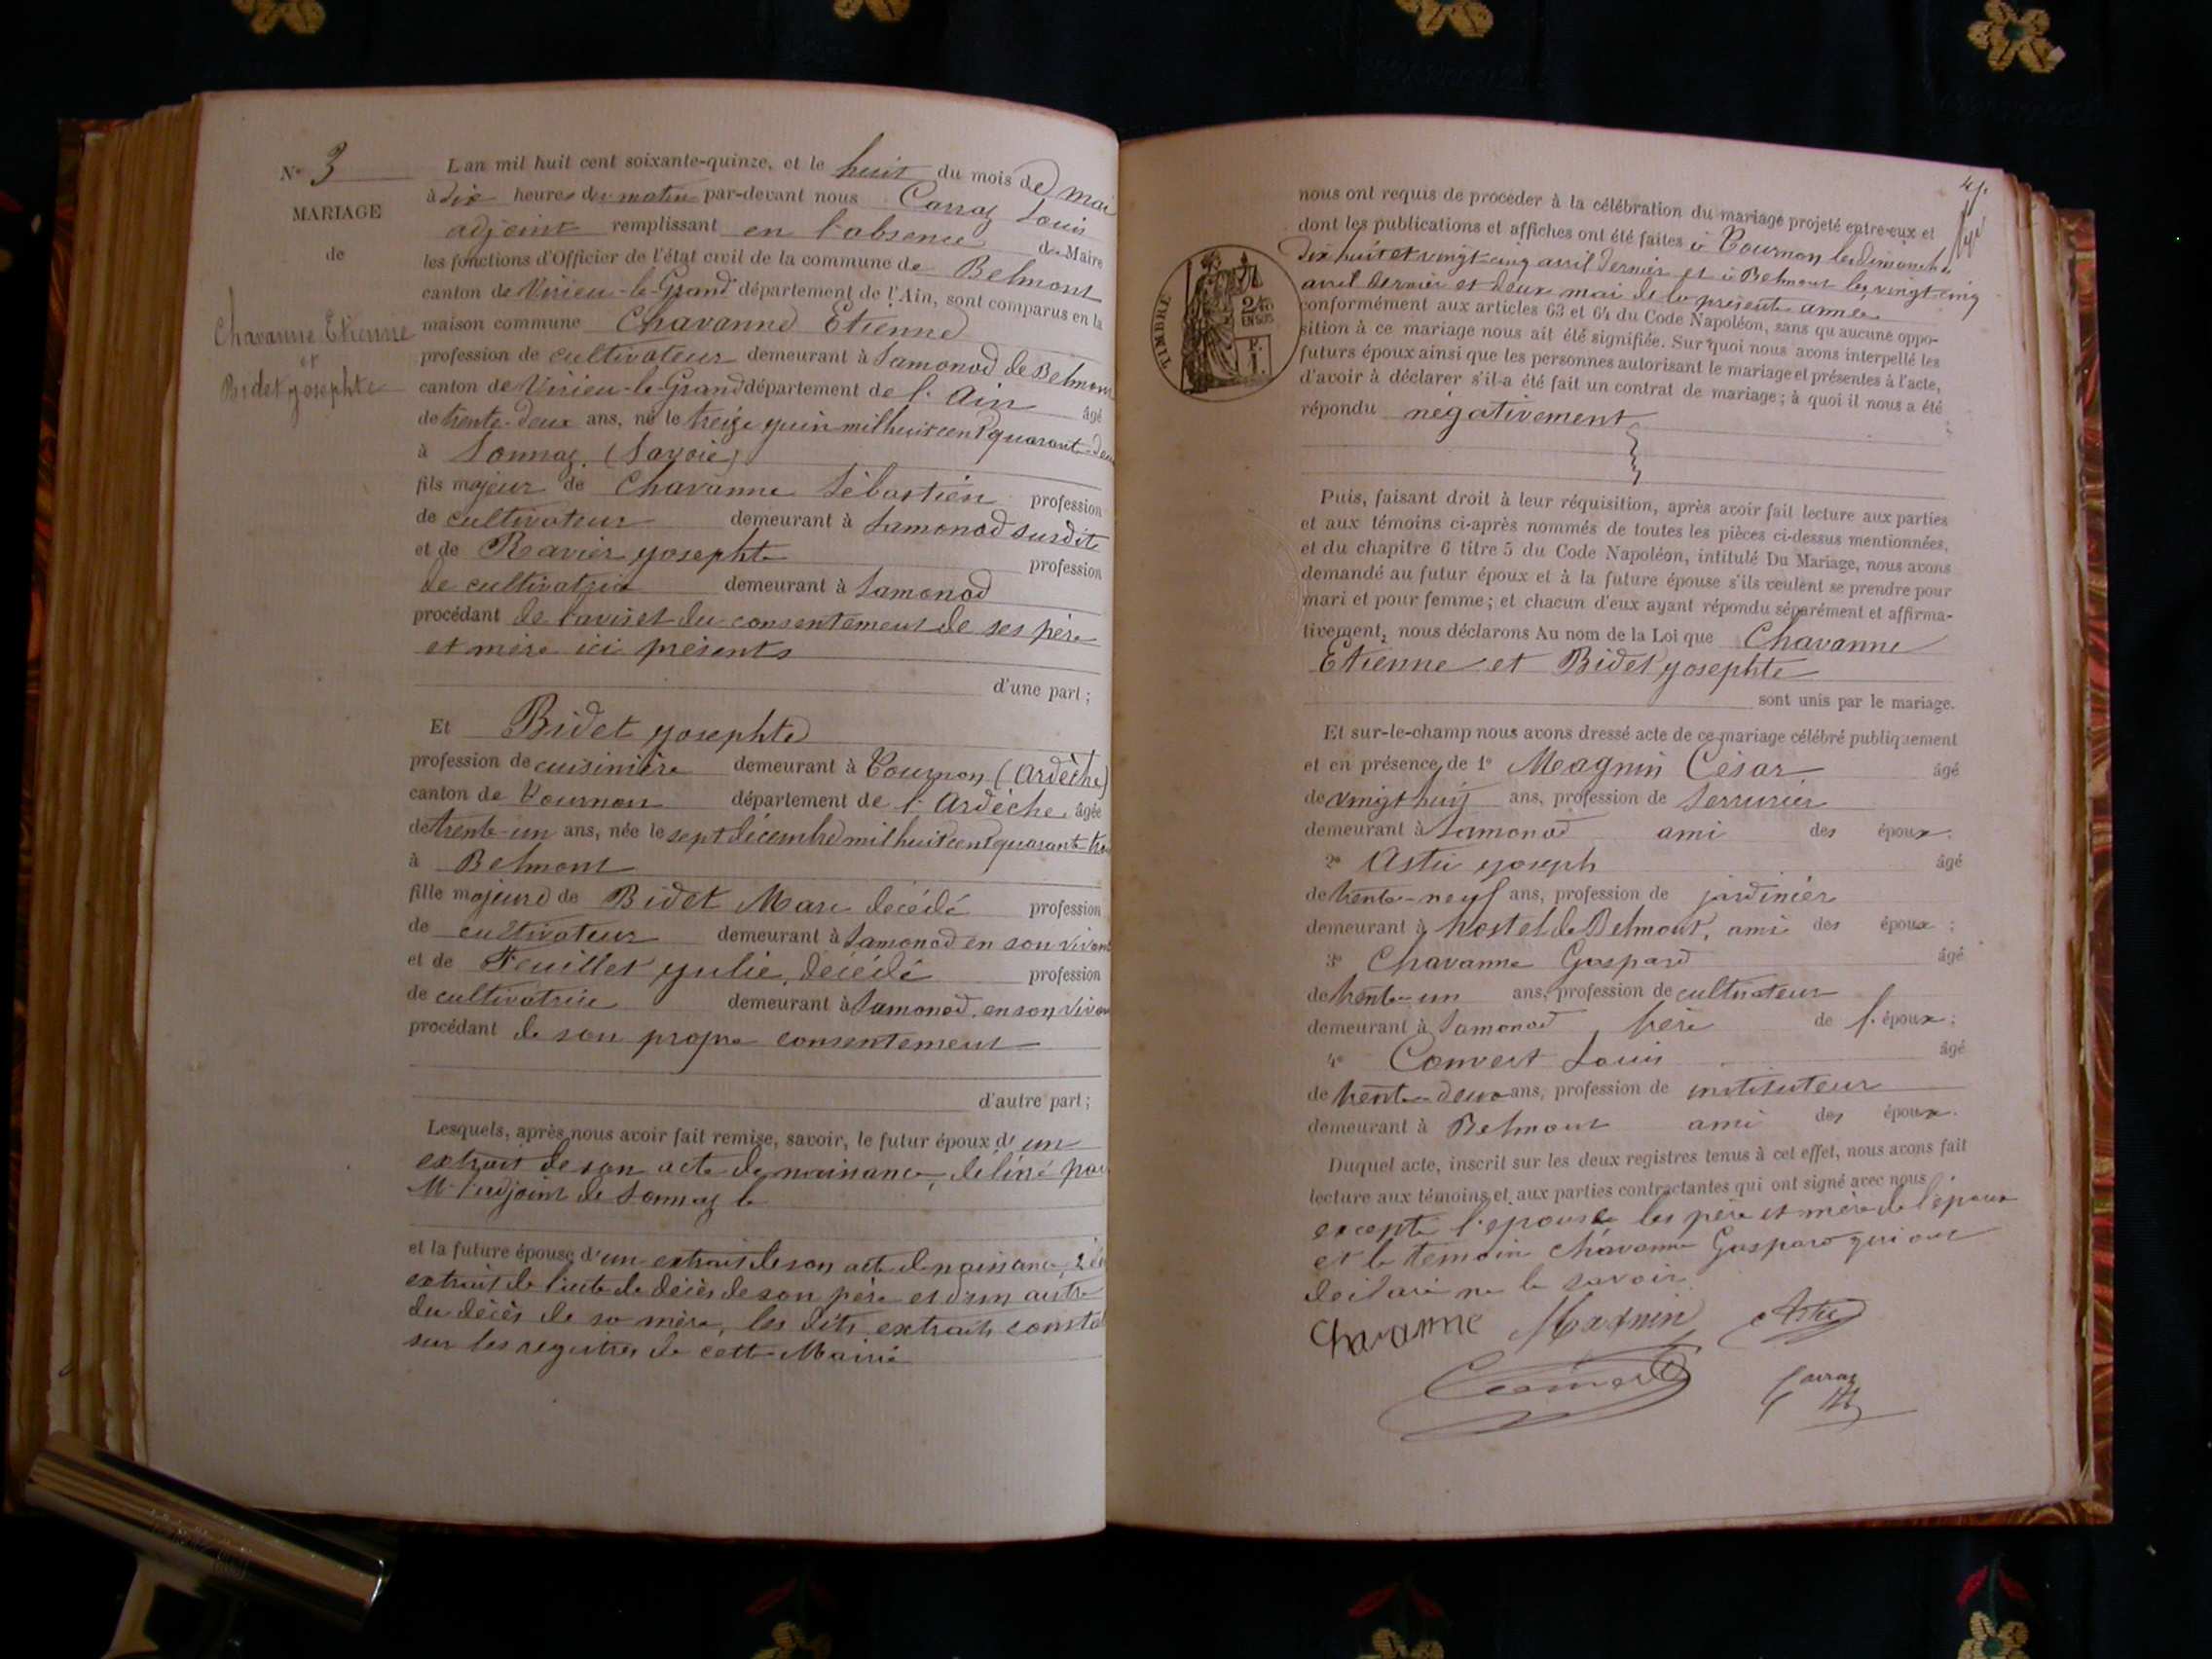 N° 3
MARIAGE
de
Chavanne Etienne
et
Bidet Josephte
L'an mil huit cent soixante-quinze, et le huit du mois de mai
à dix heures du matin par-devant nous Carraz Louis
adjoint remplissant en l'absence du Maire
les fonctions d'Officier de l'état civil de la commune de Belmont
canton de Virieu-le-Grand département de l'Ain, sont comparus en la
maison commune Chavanne Etienne
profession de cultivateur demeurant à Samonod de Belmont
canton de Virieu-le-Grand département de l'Ain âgé
de trente-deux ans, né le treize juin mil huit cent quarante-deux
à Sonnaz (Savoie)
fils majeur de Chavanne Sébastien profession
de cultivateur demeurant à Samonod susdite
et de Ravier Josephte profession
de cultivatrice demeurant à Samonod
procédant de l'avis et du consentement de ses père
et mère ici présents
d'une part ;
Et Bidet Josephte
profession de cuisinière demeurant à Tournon (Ardèche)
canton de Tournon département de l'Ardèche, âgée
de trente-un ans, née le sept décembre mil huit cent quarante-trois
à Belmont
fille majeure de Bidet Marc décédé profession
de cultivateur demeurant à Samonod en son vivant
et de Feuillet Julie, décédé profession
de cultivatrice demeurant à Samonod, en son vivant
procédant de son propre consentement
d'autre part ;
Lesquels, après nous avoir fait remise, savoir, le futur époux d'un
extrait de son acte de naissance, délivré par
Mr l'adjoint de Sonnaz le
et la future épouse d'un extrait de son acte de naissance, 2°
extrait de l'acte de décès de son père et d'un autre
du décès de sa mère, les dits extraits
sur les registres de cette Mairie
nous ont requis de procéder à la célébration du mariage projeté entre eux et
dont les publications et affiches ont été faites à Tournon les dimanche
dix huit et vingt-cinq avril dernier et à Belmont les vingt cinq
avril dernier et deux mai de la présente année
TIMBRE
conformément aux articles 63 et 64 du Code Napoléon, sans qu'aucune oppo-
sition à ce mariage nous ait été signifiée. Sur quoi nous avons interpellé les
futurs époux ainsi que les personnes autorisant le mariage et présentes à l'acte,
d'avoir à déclarer s'il a été fait un contrat de mariage ; à quoi il nous a été
répondu négativement
Puis, faisant droit à leur réquisition, après avoir fait lecture aux parties
et aux témoins ci-après nommés de toutes les pièces ci-dessus mentionnées,
et du chapitre 6 titre 5 du Code Napoléon, intitulé Du Mariage, nous avons
demandé au futur époux et à la future épouse s'ils veulent se prendre pour
mari et pour femme ; et chacun d'eux ayant répondu séparément et affirma-
tivement, nous déclarons Au nom de la Loi que Chavanne
Etienne et Bidet Josephte
sont unis par le mariage.
Et sur-le-champ nous avons dressé acte de ce mariage célébré publiquement
et en présence de 1° Magnin César, âgé
de vingt huit ans, profession de serrurier
demeurant à Samonod ami des époux ;
2° Astié Joseph âgé
de trente-neuf ans, profession de jardinier
demeurant à hostel de Belmont, ami des époux ;
3° Chavanne Gaspard âgé
de trente-un ans, profession de cultivateur
demeurant à Samonod frère de l'époux ;
4° Convert Louis âgé
de trente-deux ans, profession de instituteur
demeurant à Belmont ami des époux.
Duquel acte, inscrit sur les deux registres tenus à cet effet, nous avons fait
lecture aux témoins et aux parties contractantes qui ont signé avec nous
excepté l'épouse les père et mère de l'époux
et le témoin Chavanne Gaspard qui ont
déclaré ne le savoir.
Chavanne Magnin Astié
Convert Carraz